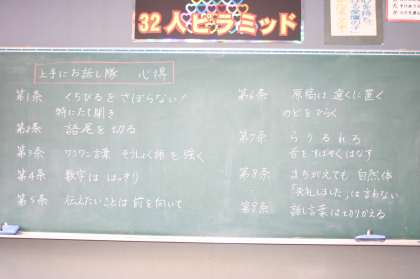 32人ピラミッド
上手にお話し隊 心得
第1条 くちびるをさぼらない!
特にたて開き
第2条 語尾を切る
第3条 ワンワン言葉 そうしょく語を強く
第4条 数字ははっきり
第5条 伝えたいことは前を向いて
第6条 原稿は遠くに置く
のどをひらく
第7条 らりるれろ
舌をすばやくはなす
第8条 まちがえても自然体
「失礼しました」は言わない
第9条 話し言葉は切りかえる